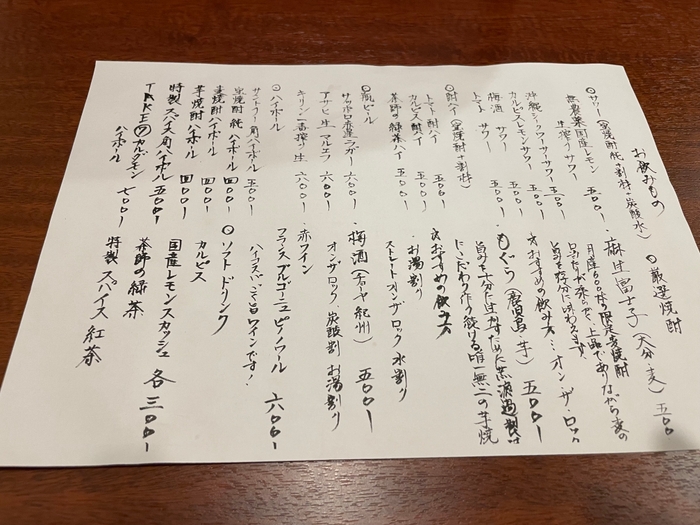 お飲みもの
○サワー(宝焼酎純+割材・炭酸水)
無農薬国産レモン
生搾りサワー 五五〇ー
沖縄シークワーサーサワー 五〇〇ー
カルピスレモンサワー 五〇〇ー
梅酒サワー 五〇〇ー
トマトサワー 五〇〇ー
○酎ハイ(宝焼酎+割材)
トマト酎ハイ 五〇〇ー
カルピス酎ハイ 五〇〇ー
茶師の緑茶ハイ 五〇〇ー
○瓶ビール
サッポロ赤星ラガー 六〇〇ー
アサヒ生マルエフ 六〇〇ー
キリン一番搾り生 六〇〇ー
○ハイボール
サントリー角ハイボール 五〇〇ー
宝焼酎純ハイボール 四〇〇ー
麦焼酎ハイボール 四〇〇ー
芋焼酎ハイボール 四〇〇ー
特製スパイス角ハイボール 五〇〇ー
TAKEのカルダモン
ハイボール 七〇〇ー
○厳選焼酎
・麻生富士子(大分・麦) 五〇〇
月産600本の限定麦焼酎
口あたりが柔らかで、上品でありながら麦の
旨みを存分に味わえます。
☆おすすめの飲み方…オン・ザ・ロック
・もぐら(鹿児島 芋) 五〇〇ー
旨みを十分に生かすため荒濾過製法
にこだわり作り続ける唯一無二の芋焼
☆おすすめの飲み方
・お湯割り
ストレート オンザロック 水割り
・梅酒(石神 紀州) 五〇〇ー
オンザロック 炭酸割 お湯割り
赤ワイン
フランス ブルゴーニュ ピノノワール 六〇〇ー
ハイスパで旨口ワインです!
○ソフトドリンク
カルピス
国産レモンスカッシュ 各三〇〇ー
茶師の緑茶
特製スパイス紅茶